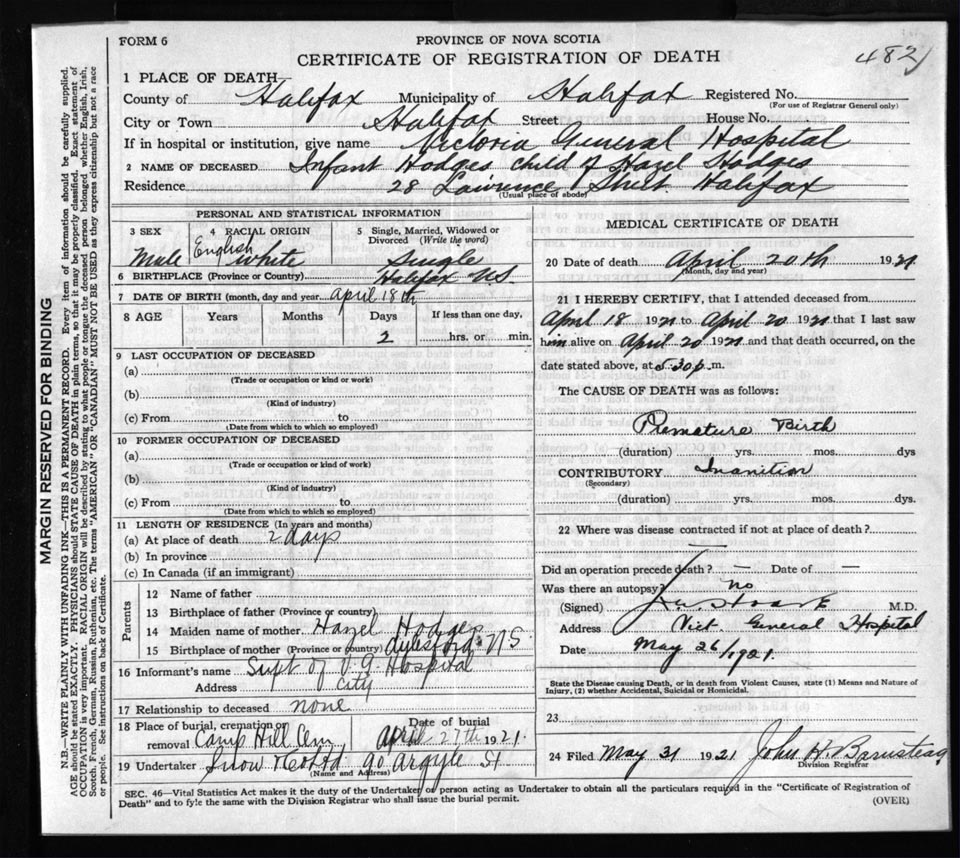 FORM 6
PROVINCE OF NOVA SCOTIA
CERTIFICATE OF REGISTRATION OF DEATH
482
1 PLACE OF DEATH
County of Halifax Municipality of Halifax Registered No.
(For use of Registrar General only)
City or Town Halifax Street House No.
If in hospital or institution, give name Victoria General Hospital
2 NAME OF DECEASED Infant Hodges child of Hazel Hodges
Residence 28 Lawrence Street Halifax
(Usual place of abode)
PERSONAL AND STATISTICAL INFORMATION
3 SEX 4 RACIAL ORIGIN 5 Single, Married, Widowed or Divorced (Write the word)
Male English White Single
6 BIRTHPLACE (Province or Country) Halifax N.S.
7 DATE OF BIRTH (month, day and year) April 18th
8 AGE Years Months Days If less than one day,
2 hrs. or min.
9 LAST OCCUPATION OF DECEASED
(a)
(Trade or occupation or kind or work)
(b)
(Kind of industry)
(c) From to
(Date from which to which so employed)
10 FORMER OCCUPATION OF DECEASED
(a)
(Trade or occupation or kind of work)
(b)
(Kind of industry)
(c) From to
(Date from which to which so employed)
11 LENGTH OF RESIDENCE (In years and months)
(a) At place of death 2 days
(b) In province
(c) In Canada (if an immigrant)
Parents
12 Name of father
13 Birthplace of father (Province or country)
14 Maiden name of mother Hazel Hodges
15 Birthplace of mother (Province or country) Aylesford NS
16 Informant's name Supt of V.G. Hospital
Address City
17 Relationship to deceased none
18 Place of burial, cremation or removal Camp Hill Cem Date of burial April 27th 1921
19 Undertaker Snow & Co Ltd 90 Argyle St
(Name and Address)
MEDICAL CERTIFICATE OF DEATH
20 Date of death April 20th 1921
(Month, day and year)
21 I HEREBY CERTIFY, that I attended deceased from
April 18 1921 to April 20 1921 that I last saw
him alive on April 20 1921 and that death occurred, on the
date stated above, at 5.30 p.m.
The CAUSE OF DEATH was as follows:
Premature Birth
(duration) yrs. mos. dys
CONTRIBUTORY Inanition
(Secondary)
(duration) yrs. mos. dys.
22 Where was disease contracted if not at place of death?
Did an operation precede death? — Date of —
Was there an autopsy? no
(Signed) M.D.
Address Vict General Hospital
Date May 26/1921
State the Disease causing Death, or in death from Violent Causes, state (1) Means and Nature of
Injury, (2) whether Accidental, Suicidal or Homicidal.
23
24 Filed May 31 1921 John H. Barnstead
Division Registrar
SEC. 46—Vital Statistics Act makes it the duty of the Undertaker or person acting as Undertaker to obtain all the particulars required in the "Certificate of Registration of
Death" and to fyle the same with the Division Registrar who shall issue the burial permit.
(OVER)
MARGIN RESERVED FOR BINDING
N.B.—WRITE PLAINLY WITH UNFADING INK—THIS IS A PERMANENT RECORD. Every item of information should be carefully supplied.
AGE should be stated EXACTLY. PHYSICIANS should STATE CAUSE OF DEATH in plain terms, so that it may be properly classified. Exact statement of
OCCUPATION is very important. RACIAL ORIGIN will be described by stating to what people or tongue the deceased person belonged whether English, Irish,
Scotch, French, German, Russian, Ruthenian, etc. The terms "AMERICAN" or "CANADIAN" MUST NOT BE USED as they express citizenship but not a race
or people. See instructions on back of Certificate.